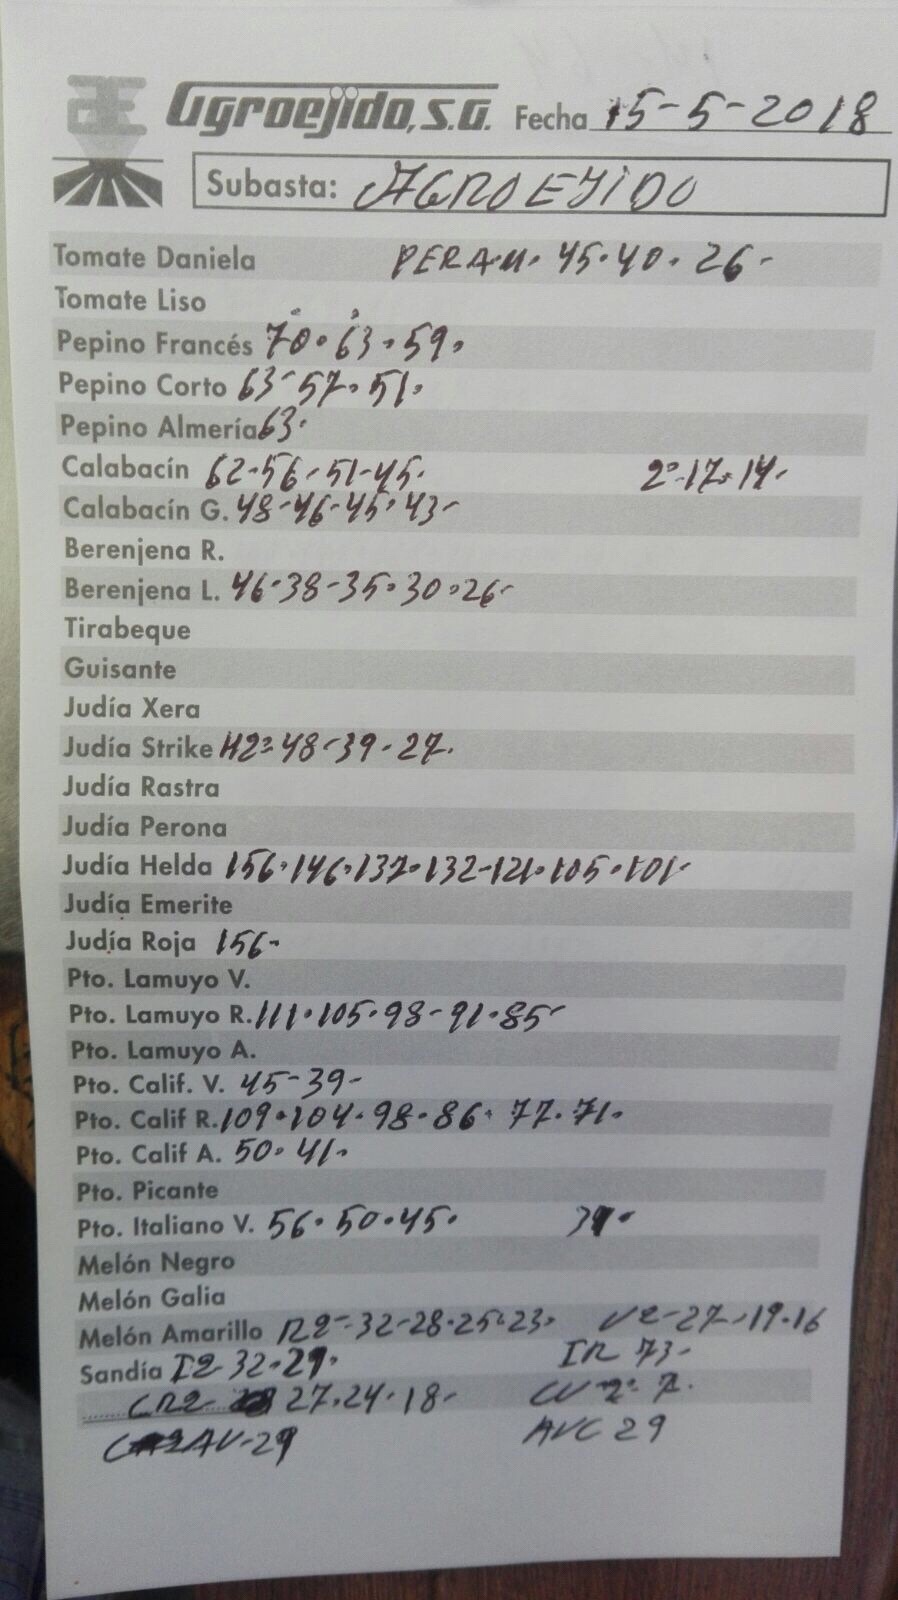 Agroejido, S.A. Fecha 15-5-2018
Subasta: AGROEJIDO
Tomate Daniela PERA.M. 45.40.26-
Tomate Liso
Pepino Francés 70.63.59.
Pepino Corto 63-57.51.
Pepino Almería 63.
Calabacín 62-56-51-45. 2ª-17.14-
Calabacín G. 48-46-45.43-
Berenjena R.
Berenjena L. 46.38-35.30.26-
Tirabeque
Guisante
Judía Xera
Judía Strike H2ª48-39-27.
Judía Rastra
Judía Perona
Judía Helda 156.146.137.132-121.105.101-
Judía Emerite
Judía Roja 156-
Pto. Lamuyo V.
Pto. Lamuyo R. 111.105.98-91.85-
Pto. Lamuyo A.
Pto. Calif. V. 45-39-
Pto. Calif R. 109.104.98.86.77.71.
Pto. Calif A. 50.41.
Pto. Picante
Pto. Italiano V. 56.50.45.
Melón Negro
Melón Galia
Melón Amarillo 32-28.25-23. 27-19.16
Sandía 32.29. 73-
27.24.18- 7.
AV-29 AVC 29